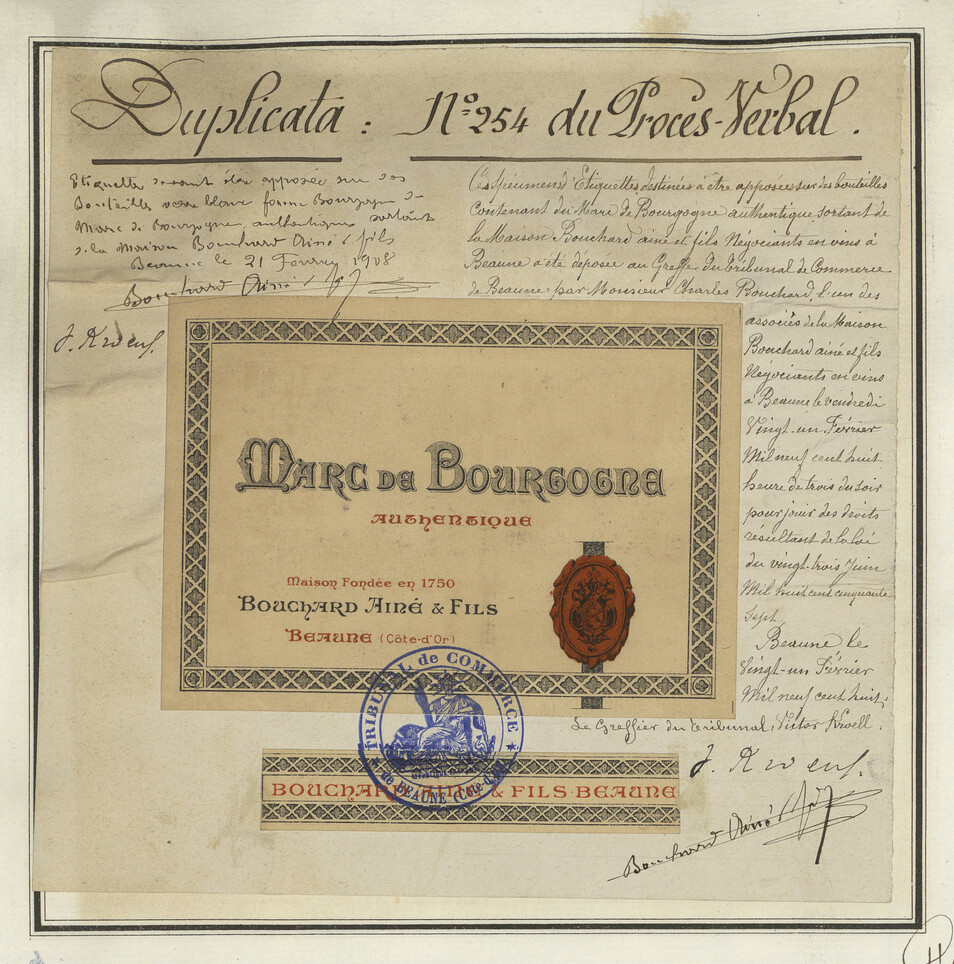 Duplicata : N° 254 du Procès-Verbal.
Etiquette devant être apposée sur des
Bouteilles verre blanc forme Bourgogne de
Marc de Bourgogne authentique sortant
de la Maison Bouchard Ainé & fils
Beaune le 21 Février 1908
Bouchard Ainé & fils
Ce Spécimen d'Etiquettes destinées à être apposées sur des bouteilles
Contenant du Marc de Bourgogne authentique sortant de
la Maison Bouchard ainé et fils Négociants en vins à
Beaune a été déposée au Greffe du tribunal de Commerce
de Beaune par Monsieur Charles Bouchard l'un des
associés de la Maison
Bouchard ainé et fils
Négociants en vins
à Beaune le vendredi
Vingt-un Février
Mil neuf cent huit
heure de trois du soir
pour jouir des droits
résultant de la loi
du vingt-trois Juin
Mil huit cent cinquante
Sept
Beaune le
Vingt-un Février
Mil neuf cent huit.
Le Greffier du tribunal, Victor
MARC DE BOURGOGNE
AUTHENTIQUE
Maison Fondée en 1750
BOUCHARD AINÉ & FILS
BEAUNE (Côte-d'Or)
TRIBUNAL de COMMERCE
de BEAUNE (Côte-d'Or)
BOUCHARD AINÉ & FILS-BEAUNE
Bouchard Ainé & fils